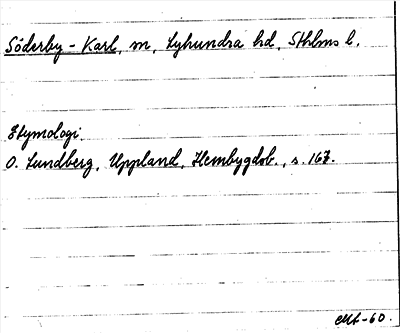 Söderby-Karl, sn, Lyhundra hd, Sthlms l.
Etymologi.
O. Lundberg, Uppland, Hembygdsb., s. 167.
-60.